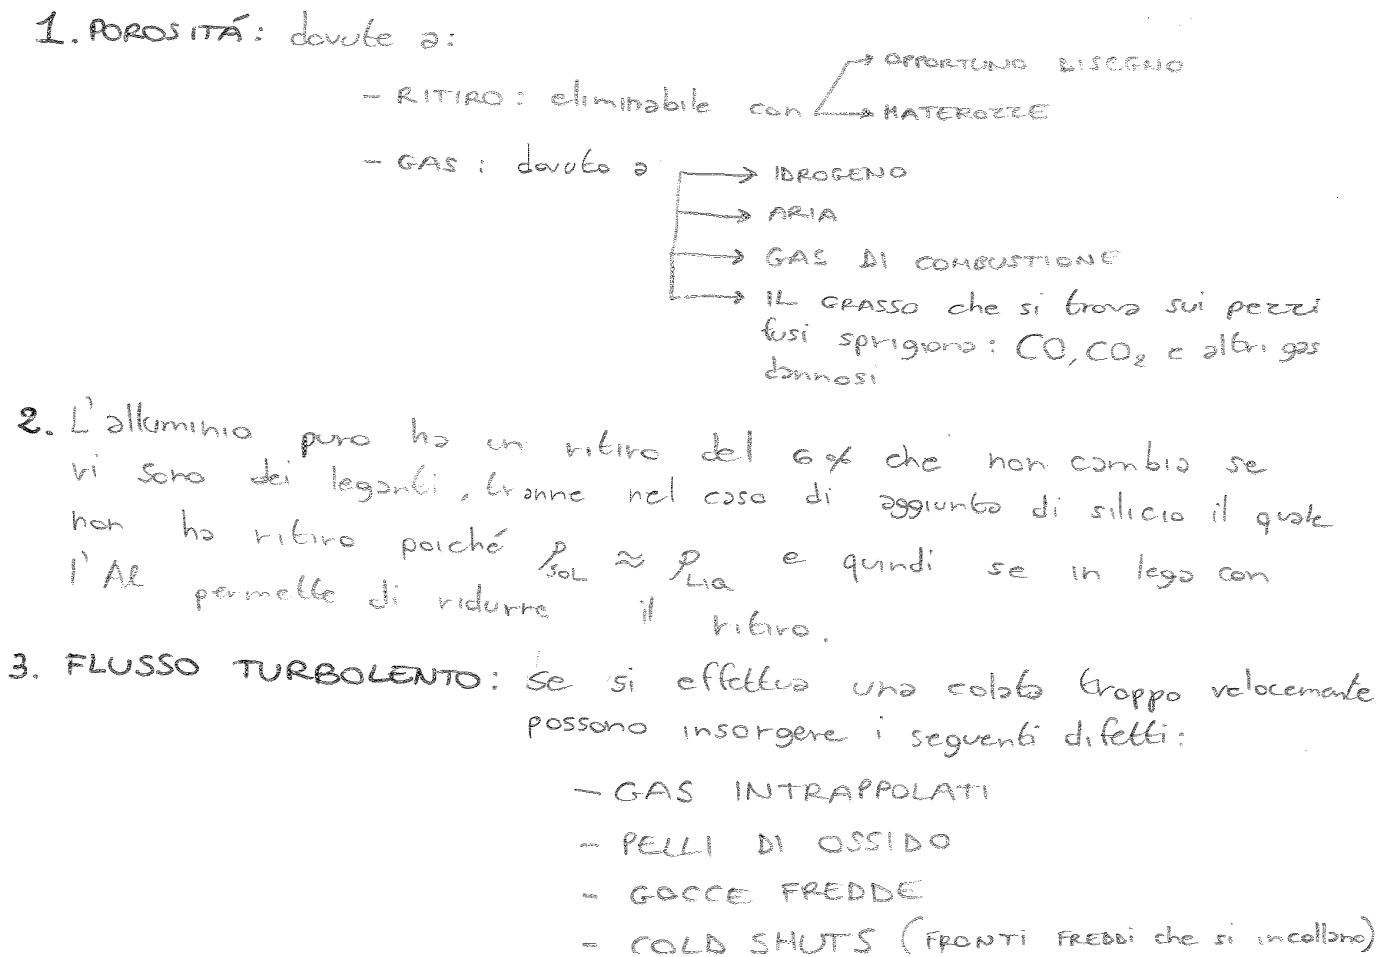 1. POROSITÁ: dovute a:
→ OPPORTUNO DISEGNO
- RITIRO: eliminabile con → MATEROZZE
- GAS: dovuto a → IDROGENO
→ ARIA
→ GAS DI COMBUSTIONE
→ IL GRASSO che si trova sui pezzi
fusi sprigiona: CO, CO₂ e altri gas
dannosi
2. L'alluminio puro ha un ritiro del 6% che non cambia se
vi sono dei leganti, tranne nel caso di aggiunta di silicio il quale
non ha ritiro poiché ρSOL ≈ ρLIQ e quindi se in lega con
l'Al permette di ridurre il ritiro.
3. FLUSSO TURBOLENTO: se si effettua una colata troppo velocemente
possono insorgere i seguenti difetti:
- GAS INTRAPPOLATI
- PELLI DI OSSIDO
- GOCCE FREDDE
- COLD SHUTS (FRONTI FREDDI che si incollano)